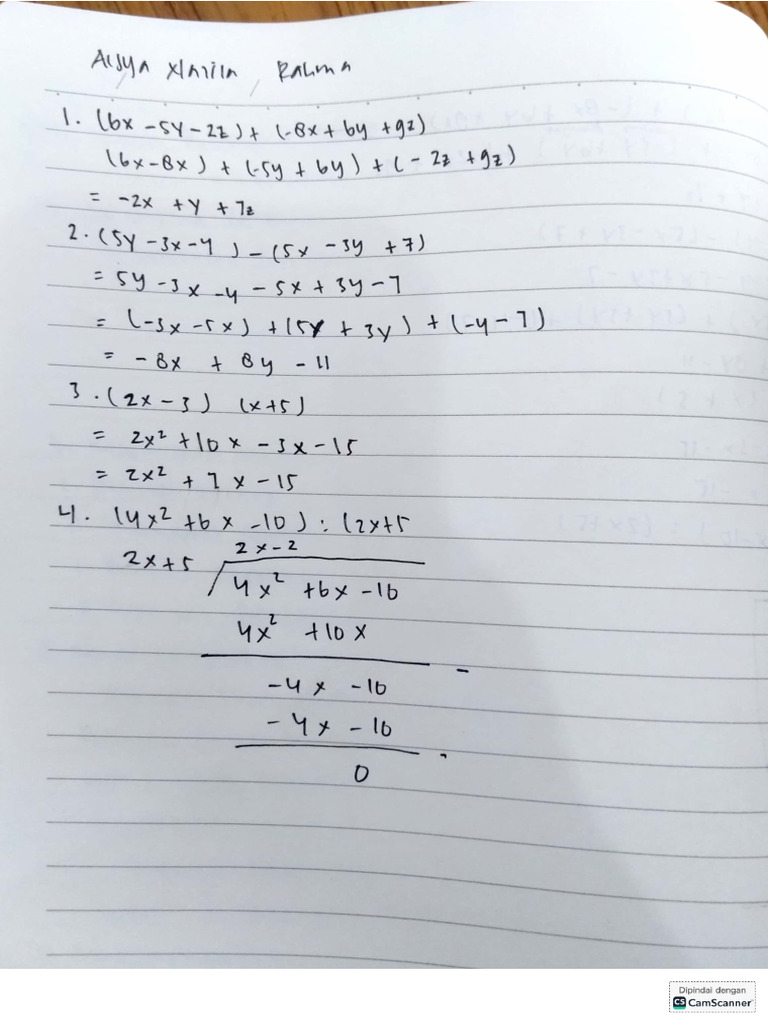 Aisya Rahma
1. (6x - 5y - 2z) + (-8x + 6y + 9z)
(6x - 8x) + (-5y + 6y) + (- 2z + 9z)
= -2x + y + 7z
2. (5y - 3x - 4) - (5x - 3y + 7)
= 5y - 3x - 4 - 5x + 3y - 7
= (-3x - 5x) + (5y + 3y) + (-4 - 7)
= - 8x + 8y - 11
3. (2x - 3) (x+5)
= 2x² + 10x - 3x - 15
= 2x² + 7x - 15
4. (4x² + 6x - 10) : (2x+5
2x - 2
2x+5 4x² + 6x - 10
4x² + 10x
-
- 4x - 10
- 4x - 10
-
0
Dipindai dengan
CS CamScanner